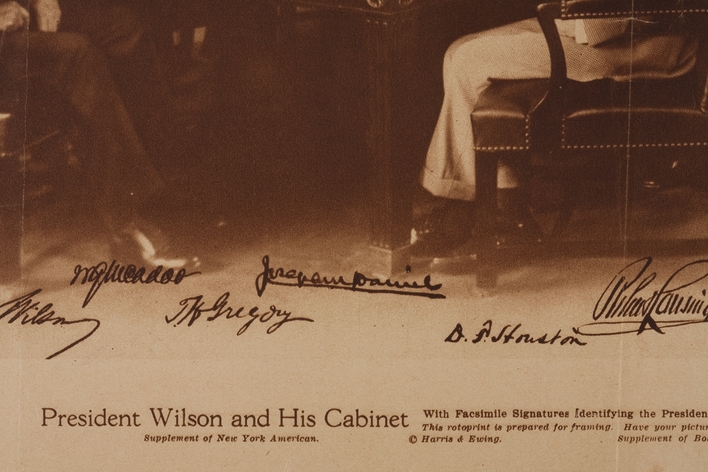 WGMcAdoo
Josephus Daniels
Wilson
TWGregory
D. F. Houston
Robert Lansing
President Wilson and His Cabinet
With Facsimile Signatures Identifying the Presiden
This rotoprint is prepared for framing. Have your pictur
Supplement of New York American.
© Harris & Ewing.
Supplement of Bo